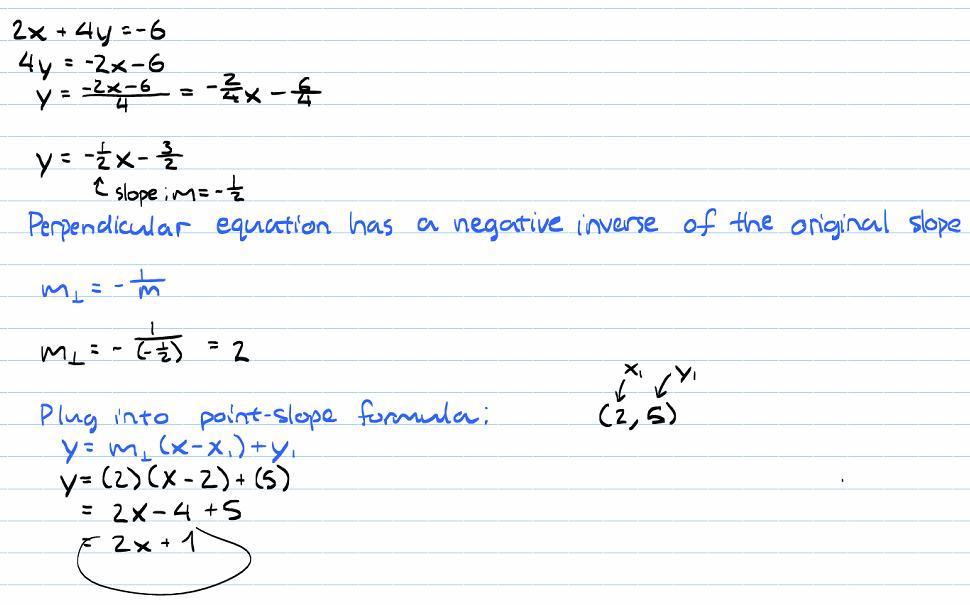 2x + 4y = -6
4y = -2x - 6
y = (-2x-6)/4 = -2/4 x - 6/4
y = -1/2 x - 3/2
↑ slope; m = -1/2
Perpendicular equation has a negative inverse of the original slope
m⊥ = - 1/m
m⊥ = - 1/(-1/2) = 2
x₁ y₁
Plug into point-slope formula: (2, 5)
y = m⊥ (x - x₁) + y₁
y = (2)(x - 2) + (5)
= 2x - 4 + 5
= 2x + 1